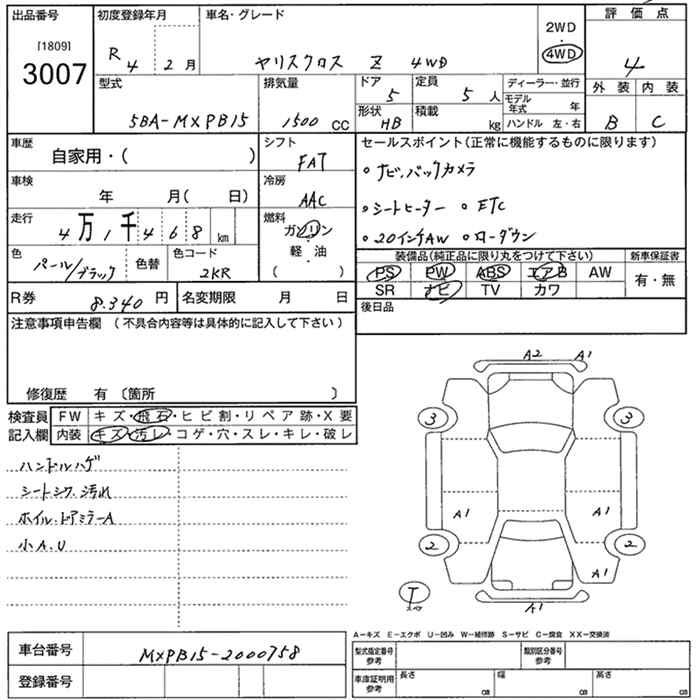 出品番号 初度登録年月 車名・グレード 2WD ・ 4WD 評価点
[1809]
3007 R 4 2月 ヤリスクロス Z 4WD 4
型式 5BA-MXPB15 排気量 1500 CC ドア 5 定員 5人 ディーラー・並行 外装 内装
形状 HB 積載 kg モデル年式 年 B C
ハンドル 左・右
車歴 自家用・( ) シフト FAT セールスポイント(正常に機能するものに限ります)
車検 年 月( 日) 冷房 AAC ・ナビ、バックカメラ
走行 4万1千468km 燃料 ガソリン 軽・油 ( ) ・シートヒーター ・ETC
・20インチAW ・ローダウン
色 パール/ブラック 色替 色コード 2KR 装備品(純正品に限り丸をつけて下さい) 新車保証書
PS PW ABS エアB AW 有・無
SR ナビ TV カワ
R券 8.340円 名変期限 月 日 後日品
注意事項申告欄 (不具合内容等は具体的に記入して下さい)
修復歴 有 〔箇所 〕
検査員記入欄 FW キズ・飛石・ヒビ割・リペア跡・X要
内装 キズ・汚レ・コゲ・穴・スレ・キレ・破レ
ハンドルハゲ
シートシワ、汚れ
ホイル、ドアミラーA
小A.U
A2 A1
3 3
A1 A1
2 2
A1
T
スペア
A1
A-キズ E-エクボ U-凹み W-補修跡 S-サビ C-腐食 XX-交換済
車台番号 MXPB15-2000758 型式指定番号 参考 類別区分番号 参考
登録番号 車庫証明用 参考 長さ cm 幅 cm 高さ cm